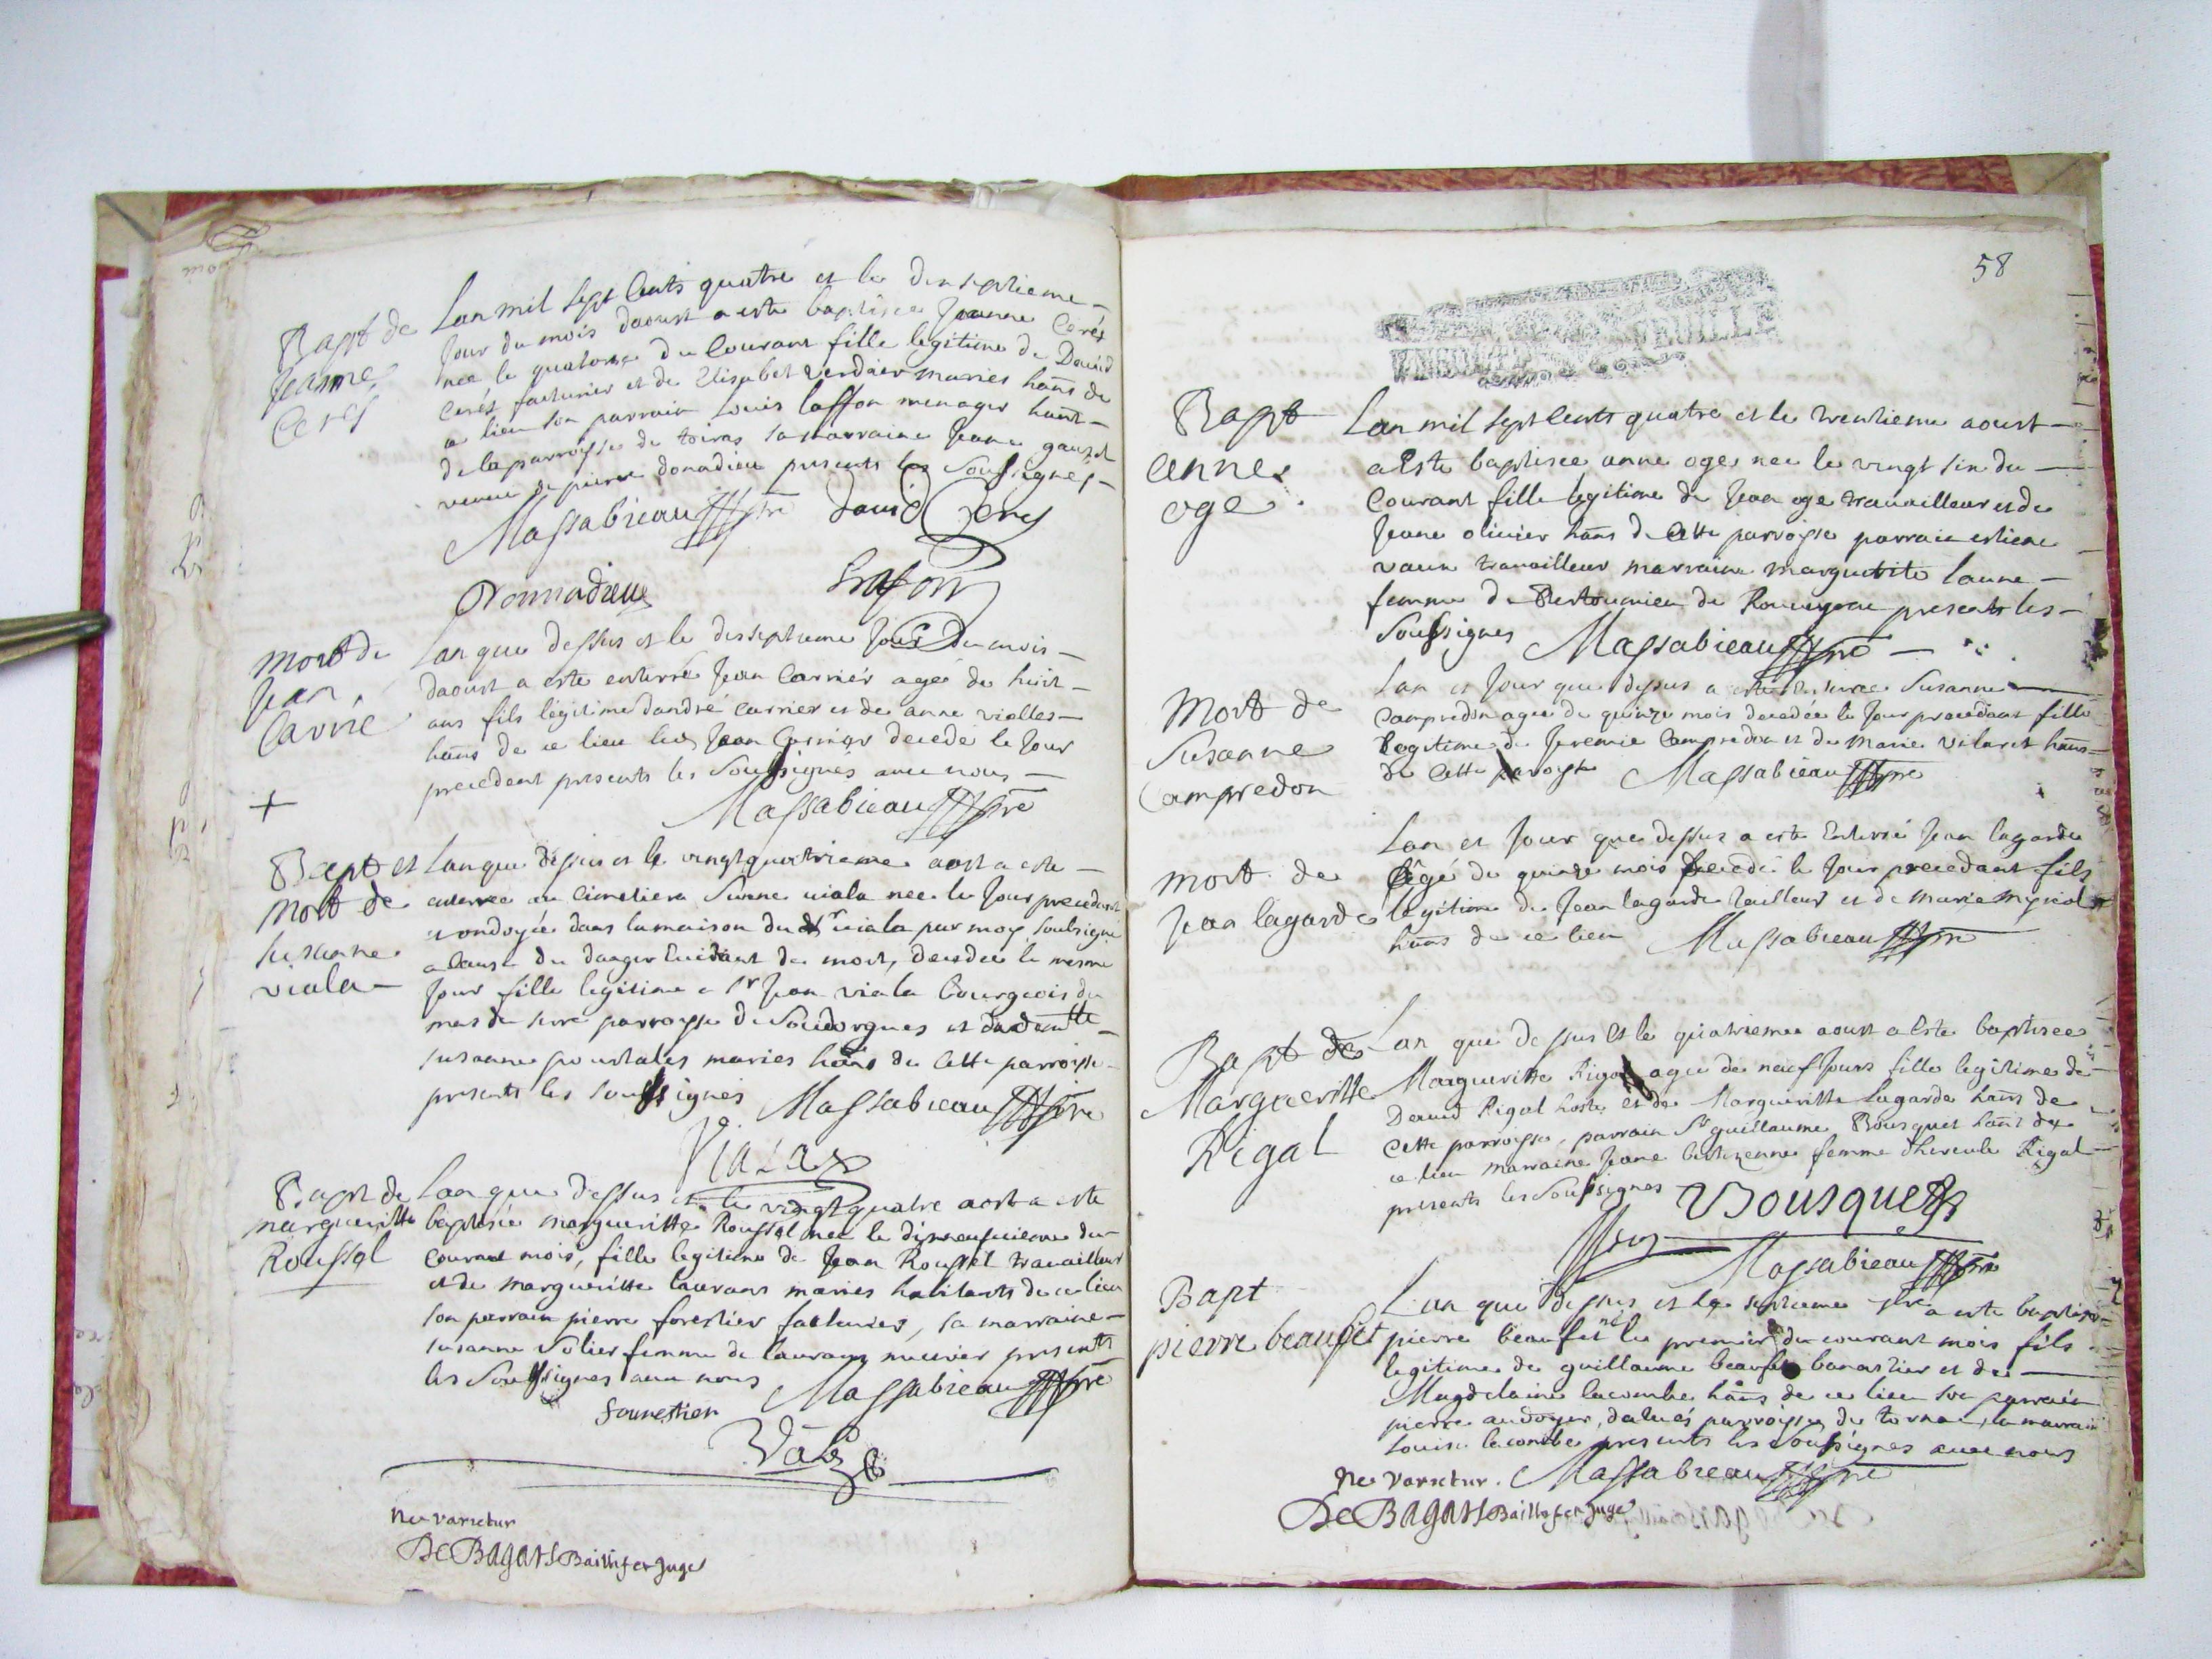 Bapt de
Jeanne
Ceres
Lan mil sept Cents quatre et le dixseptieme
Jour du mois daoust a este baptisée Jeanne Cerés
nee le quatorze du Courant fille legitime de David
Cerés facturier et de Elisabet verdier maries hans de
ce lieu son parrain Louis laffon menager hant
de la parroisse de toiras sa marraine Jeane gauzet
veuve de pierre donadieu presents les Soussignes
Massabieau pre David Ceres
Donnadieu Lafon
Mort de
Jean
Carrié
+
Lan que dessus et le dixseptieme Jour du mois
daoust a este enterré Jean Carrier agé de huit
ans fils legitime dandré Carrier et de anne vielles
hans de ce lieu led Jean Carrier decede le Jour
precedent presents les Soussignes avec nous
Massabieau pre
Bapt et
Mort de
susanne
viala
Lan que dessus et le vingt quatrieme aost a este
enterree au Cimetiere Susanne viala nee le Jour precedent
et ondoyée dans la maison dud sr viala par moy Soubsigne
a Cause du danger Evidant de mort, decedee le mesme
Jour fille legitime a Sr Jean viala bourgeois du
mas de serre parroisse de Soudorgues et de demlle
susanne poustales maries hans de Cette parroisse
presents les soussignés Massabieau pre
Viala
Bapt de
margueritte
Roussel
Lan que dessus et le vingt quatre aost a este
baptisée margueritte Roussel nee le dixneuvieme du
Courant mois, fille legitime de Jean Roussel travailleur
et de margueritte laurans maries habitants de ce lieu
son parrain pierre forestier facturier, sa marraine
susanne Solier femme de laurans presents
les Soussignes avec nous Massabieau pre
fourestier
Ne varietur
De Bagars Baillif et Juge
58
Bapt
anne
oge
Lan mil sept Cents quatre et le trentieme aoust
a Este baptisee anne oge nee le vingt six du
Courant fille legitime de Jean oge travailleur et de
Jeane olivier hans de Cette parroisse parrain estiene
travailleur marraine marguerite laune
femme de presents les
Soussignes Massabieau pre
Mort de
Susanne
Campredon
Lan et Jour que dessus a este Enterree Susanne
Campredon agee de quinze mois decedée le Jour precedant fille
Legitime de Jeremie Campredon et de Marie vilaret hans
de Cette paroisse Massabieau pre
mort de
Jean lagarde
Lan et Jour que dessus a este Enterré Jean lagarde
Agé de quinze mois Decedé le Jour precedant fils
legitime de Jean lagarde tailleur et de marie
hans de ce lieu Massabieau pre
Bapt de
Margueritte
Rigal
Lan que dessus Et le quatrieme aoust a Este baptisee
Margueritte Rigal agee de neuf Jours fille legitime de
David Rigal hoste et de Margueritte Lagarde hans de
Cette parroisse, parrain Sr guillaume Bousquet hant de
ce lieu marraine Jeane femme dhercule Rigal
presents les Soussignes Bousquet
Massabieau pre
Bapt
pierre beaufet
Lan que dessus et le septieme a este baptise
pierre beaufet né le premier du courant mois fils
legitime de guillaume beaufet banastier et de
Magdelaine lacombe hans de ce lieu son parrain
pierre audoyer, parroisse de tornac, la marraine
Louise lacombe presents les Soussignes avec nous
Ne varietur. Massabieau pre
De Bagars Baillif et Juge